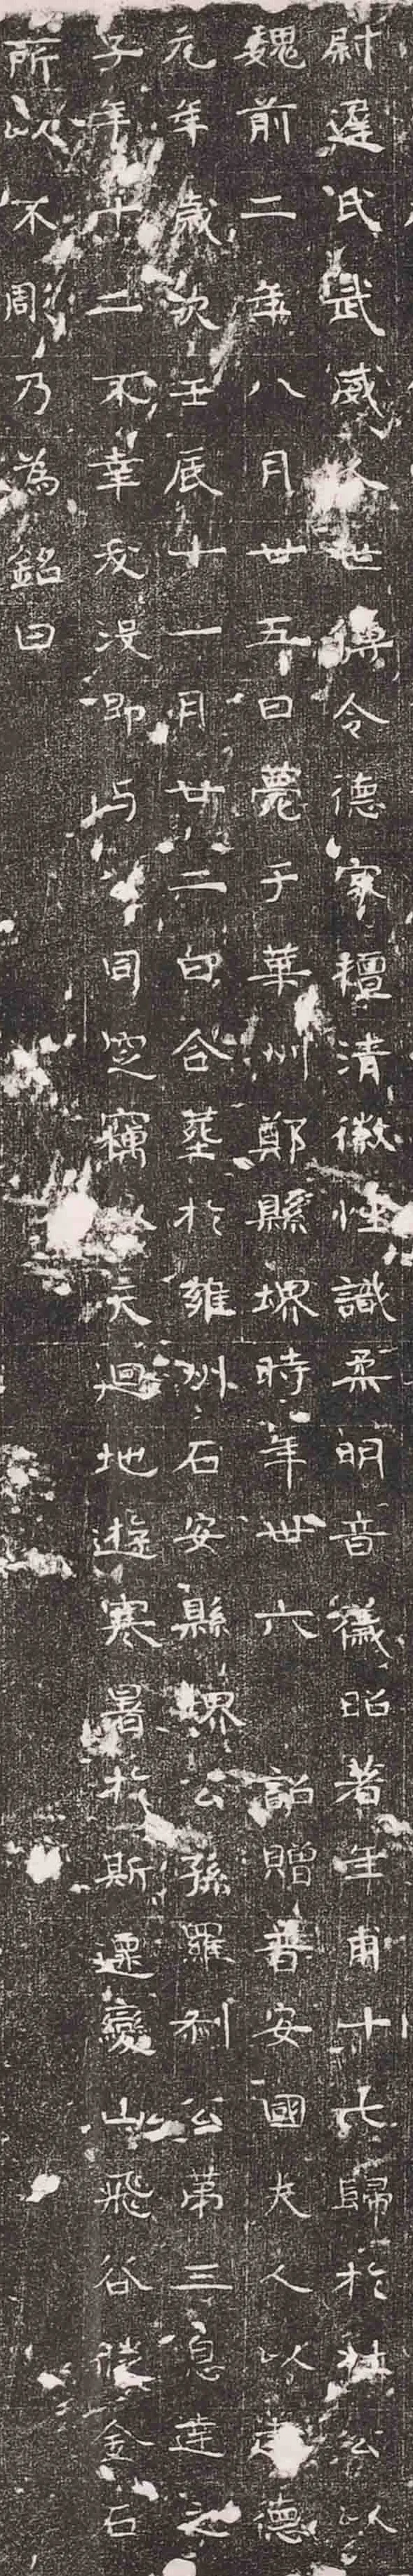 尉遲氏武威人世傳令德家襢清徽性識柔明音儀昭著年甫十七歸於公以
魏前二年八月卅五日薨于華州鄭縣堺時年卅六詔贈普安國夫人以建德
元年歲次壬辰十一月廿二日合塟於雍州石安縣堺公孫羅刹公第三息達之
子年十二不幸夭没即与公同空窆以天迴地遊寒暑於斯遞變山飛谷徙金石
所以不彫乃為銘曰